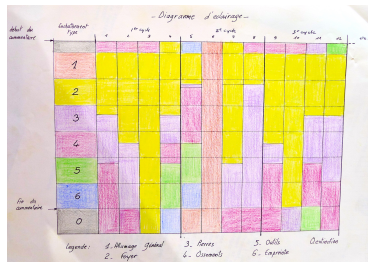 - Diagramme d'eclairage -
début du commentaire
Enchaînement type
1er cycle
2e cycle
3e cycle
1 2 3 4 5 6 7 8 9 10 11 12
1
2
3
4
5
6
0
Fin du commentaire
Legende:
1. Allumage général
2. Foyer
3. Pierres
4. Ossements
5. Outils
6. Empreinte
0 extinction